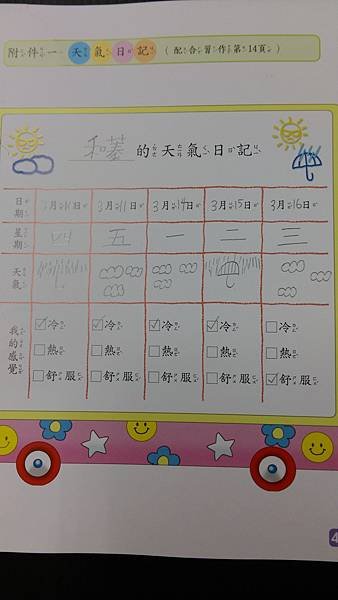 附件一 天氣日記（配合習作第14頁）
和蓁的天氣日記
日期 3月10日 3月11日 3月14日 3月15日 3月16日
星期 四 五 一 二 三
天氣
我的感覺 ☑冷 ☑冷 ☑冷 ☑冷 ☐冷
☐熱 ☐熱 ☐熱 ☐熱 ☐熱
☐舒服 ☐舒服 ☐舒服 ☐舒服 ☑舒服